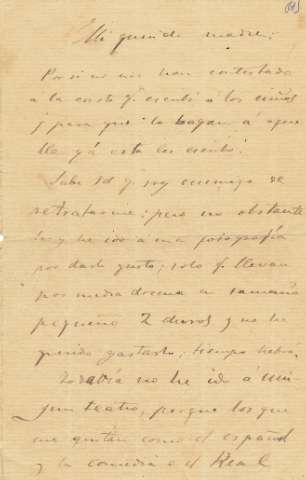 Mi querida madre:
Por si no me han contestado
á la carta q. escribí á los niños
y para que la hagan á aque
lla yá esta les escribí.
Sabe Vd q. soy enemigo de
retratarme; pero no obstante
hoy he ido a una fotografía
por darle gusto; solo q. llevan
por media docena en tamaño
pequeño 2 duros y no he
querido gastarlo; tiempo habrá.
Todavía no he ido á nin
gun teatro, porque los que
me gustan como el español
y la comedia o el Real